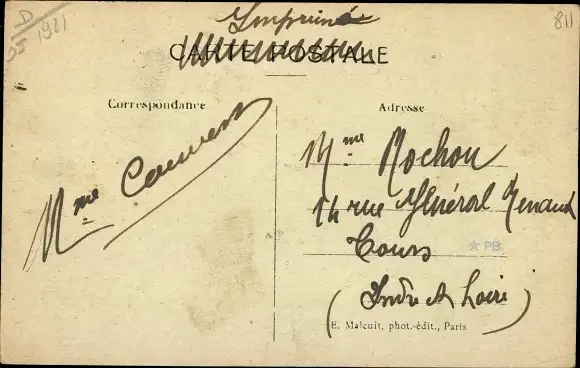 D
1921
35
Imprimé
811
CARTE POSTALE
Correspondance
Adresse
Mme
Mme Rochon
14 rue Général Renault
Tours
(Indre et Loire)
* PB
E. Malcuit, phot.-édit., Paris